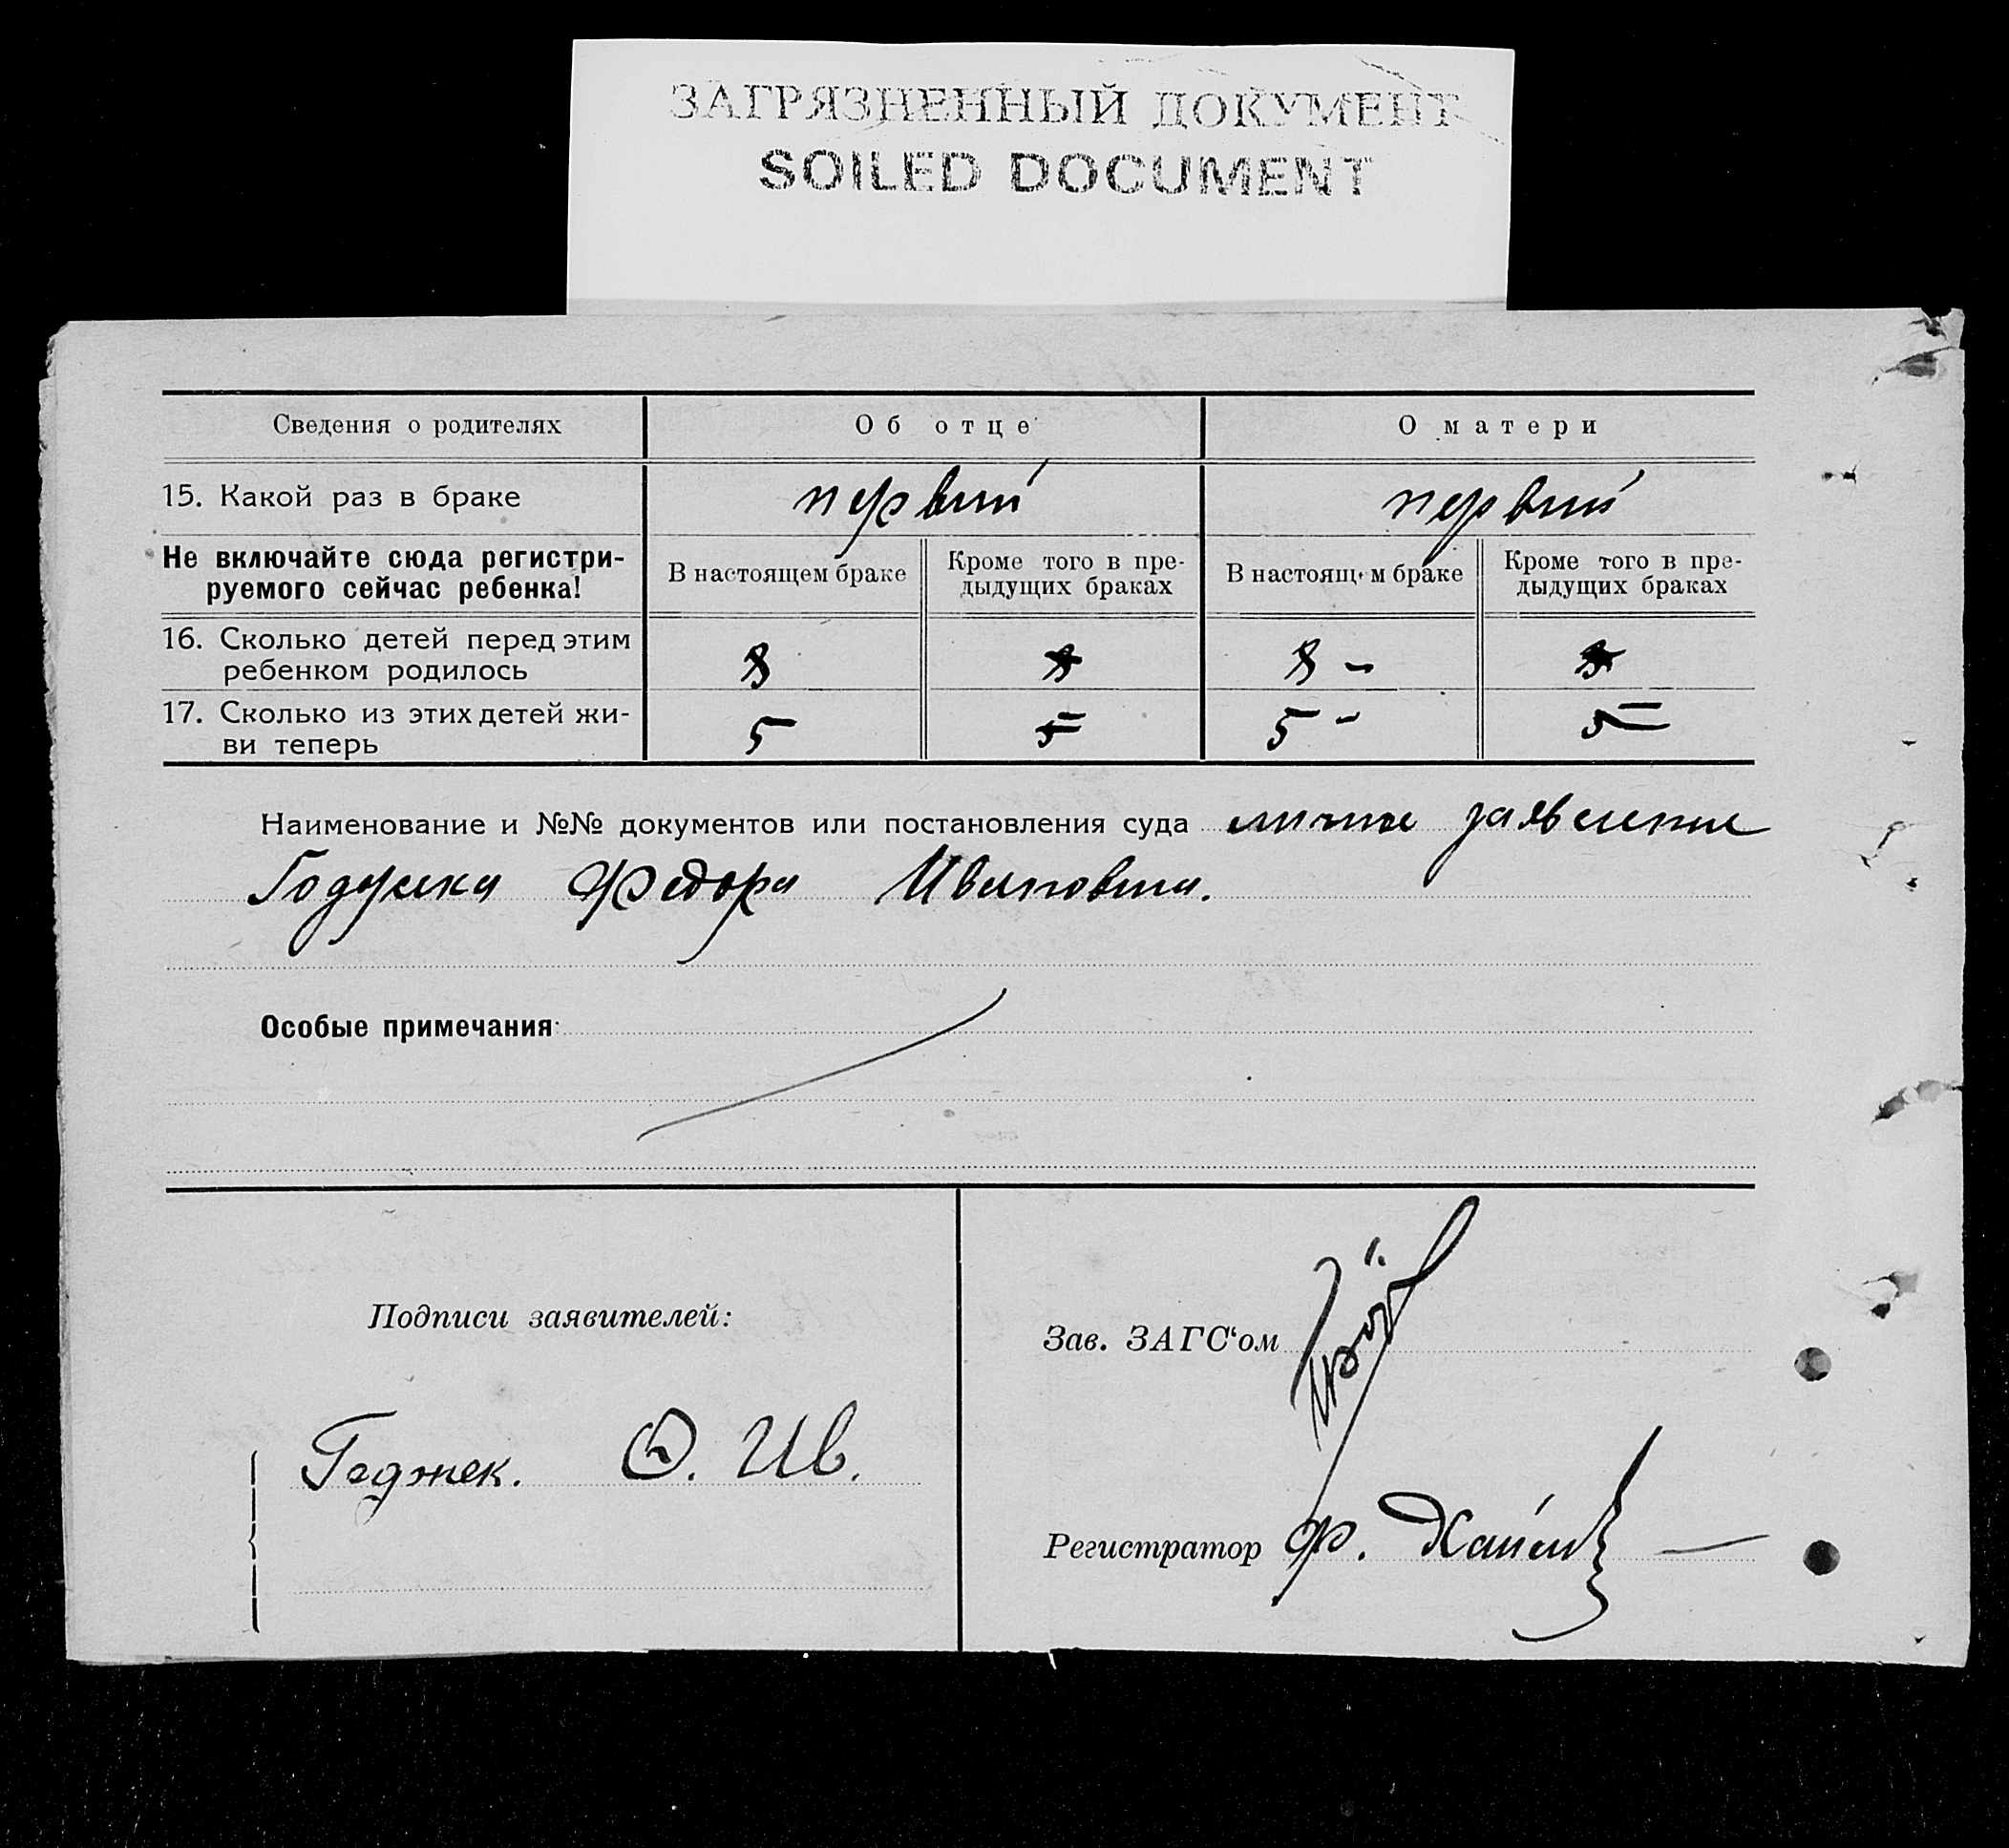 ЗАГРЯЗНЕННЫЙ ДОКУМЕНТ
SOILED DOCUMENT
Сведения о родителях
Об отце
О матери
15. Какой раз в браке
первый
первый
Не включайте сюда регистри-
руемого сейчас ребенка!
В настоящем браке
Кроме того в пре-
дыдущих браках
В настоящ м браке
Кроме того в пре-
дыдущих браках
16. Сколько детей перед этим
ребенком родилось
8
8 -
17. Сколько из этих детей жи-
ви теперь
5
5
5 -
5
Наименование и №№ документов или постановления суда личное заявление
Федора Ивановича.
Особые примечания
Подписи заявителей:
Зав. ЗАГС‘ом
Годжек. Ф. Ив.
Регистратор Ф.